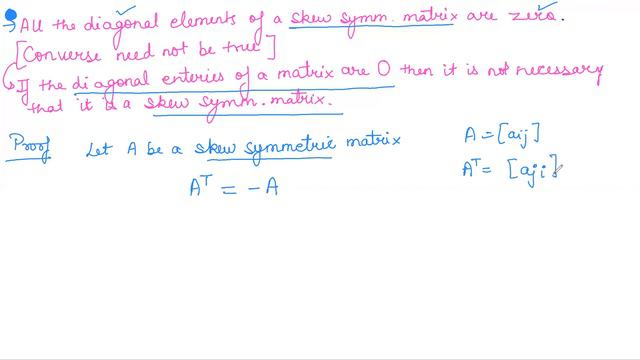 → All the diagonal elements of a skew symm. matrix are zero.
[Converse need not be true]
→ If the diagonal enteries of a matrix are 0 then it is not necessary
that it is a skew symm. matrix.
Proof Let A be a skew symmetric matrix
A = [aij]
Aᵀ = [aji]
Aᵀ = -A